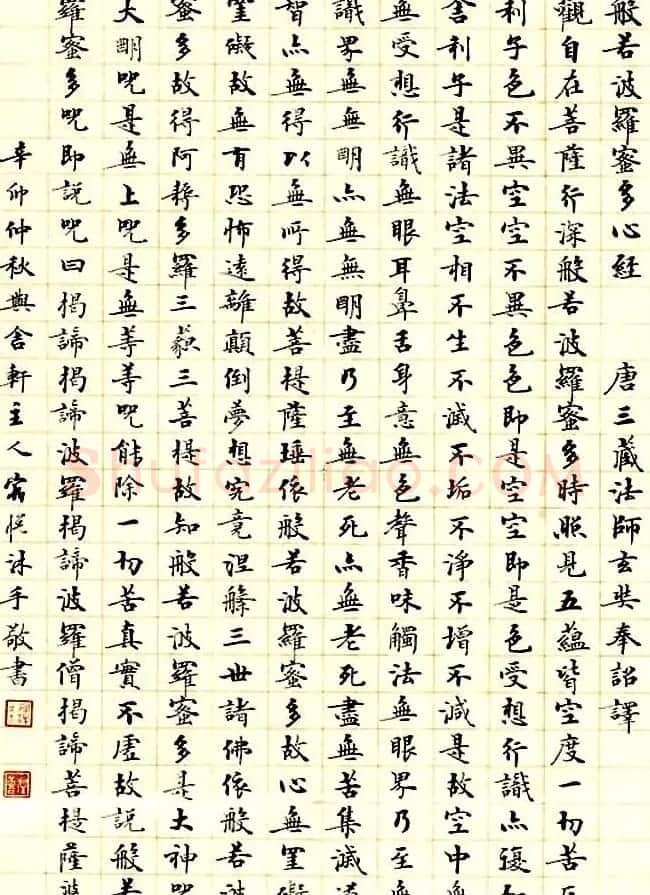 般若波羅蜜多心経 唐三藏法師玄奘奉詔譯
觀自在菩薩行深般若波羅蜜多時照見五蘊皆空度一切苦厄
利子色不異空空不異色色即是空空即是色受想行識亦復如
舍利子是諸法空相不生不滅不垢不淨不增不減是故空中無
無受想行識無眼耳鼻舌身意無色聲香味觸法無眼界乃至無
識界無無明亦無無明盡乃至無老死亦無老死盡無苦集滅道
智亦無得以無所得故菩提薩埵依般若波羅蜜多故心無罣礙
罣礙故無有恐怖遠離顛倒夢想究竟涅槃三世諸佛依般若波
蜜多故得阿耨多羅三藐三菩提故知般若波羅蜜多是大神咒
大明咒是無上咒是無等等咒能除一切苦真實不虛故說般若
羅蜜多咒即說咒曰揭諦揭諦波羅揭諦波羅僧揭諦菩提薩婆
辛卯仲秋舍軒主人沐手敬書
Shufaziliao.COM